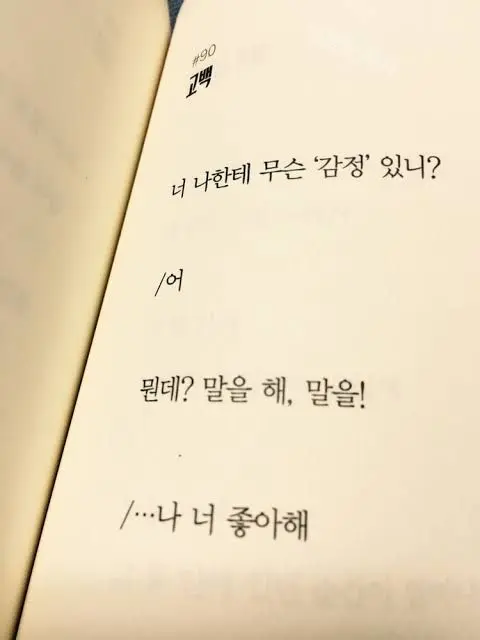 #90
고백
너 나한테 무슨 ‘감정’ 있니?
/어
뭔데? 말을 해, 말을!
/…나 너 좋아해